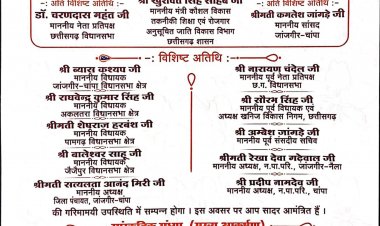 -: अति विशिष्ट अतिथि :-
डॉ. चरणदास महंत जी
माननीय नेता प्रतिपक्ष
छत्तीसगढ़ विधानसभा
श्री खुशवंत सिंह साहेब जी
माननीय मंत्री कौशल विकास
तकनीकी शिक्षा एवं रोजगार
अनुसूचित जाति विकास विभाग
छत्तीसगढ़ शासन
-: अति विशिष्ट अतिथि :-
श्रीमती कमलेश जांगड़े जी
माननीय सांसद
जांजगीर-चांपा
-: विशिष्ट अतिथि :-
श्री ब्यास कश्यप जी
माननीय विधायक
जांजगीर-चांपा विधानसभा क्षेत्र
श्री राघवेन्द्र कुमार सिंह जी
माननीय विधायक
अकलतरा विधानसभा क्षेत्र
श्रीमती शेषराज हरबंश जी
माननीय विधायक
पामगढ़ विधानसभा क्षेत्र
श्री बालेश्वर साहू जी
माननीय विधायक
जैजैपुर विधानसभा क्षेत्र
श्रीमती सत्यलता आनंद मिरी जी
माननीय अध्यक्ष
जिला पंचायत, जांजगीर-चांपा
श्री नारायण चंदेल जी
माननीय पूर्व नेता प्रतिपक्ष
छ.ग. विधानसभा
श्री सौरभ सिंह जी
माननीय पूर्व विधायक एवं
अध्यक्ष खनिज विकास निगम, छत्तीसगढ़
श्री अम्बेश जांगड़े जी
माननीय पूर्व संसदीय सचिव
श्रीमती रेखा देवा गढ़ेवाल जी
माननीय अध्यक्ष, न.पा.परि., जांजगीर-नैला
श्री प्रदीप नामदेव जी
माननीय अध्यक्ष, न.पा.परि., चांपा
की गरिमामयी उपस्थिति में सम्पन्न होगा । इस अवसर पर आप सादर आमंत्रित हैं ।